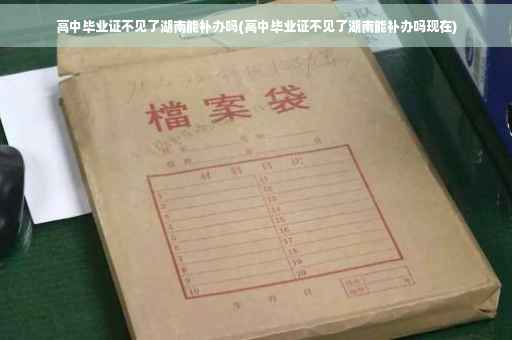 高中毕业证不见了湖南能补办吗(高中毕业证不见了湖南能补办吗现在)
檔案袋
材料目次
1 11
2 12
3 13
4 14
5 15
6 16
7 17
8 18
9 19
10 20
年 月 日